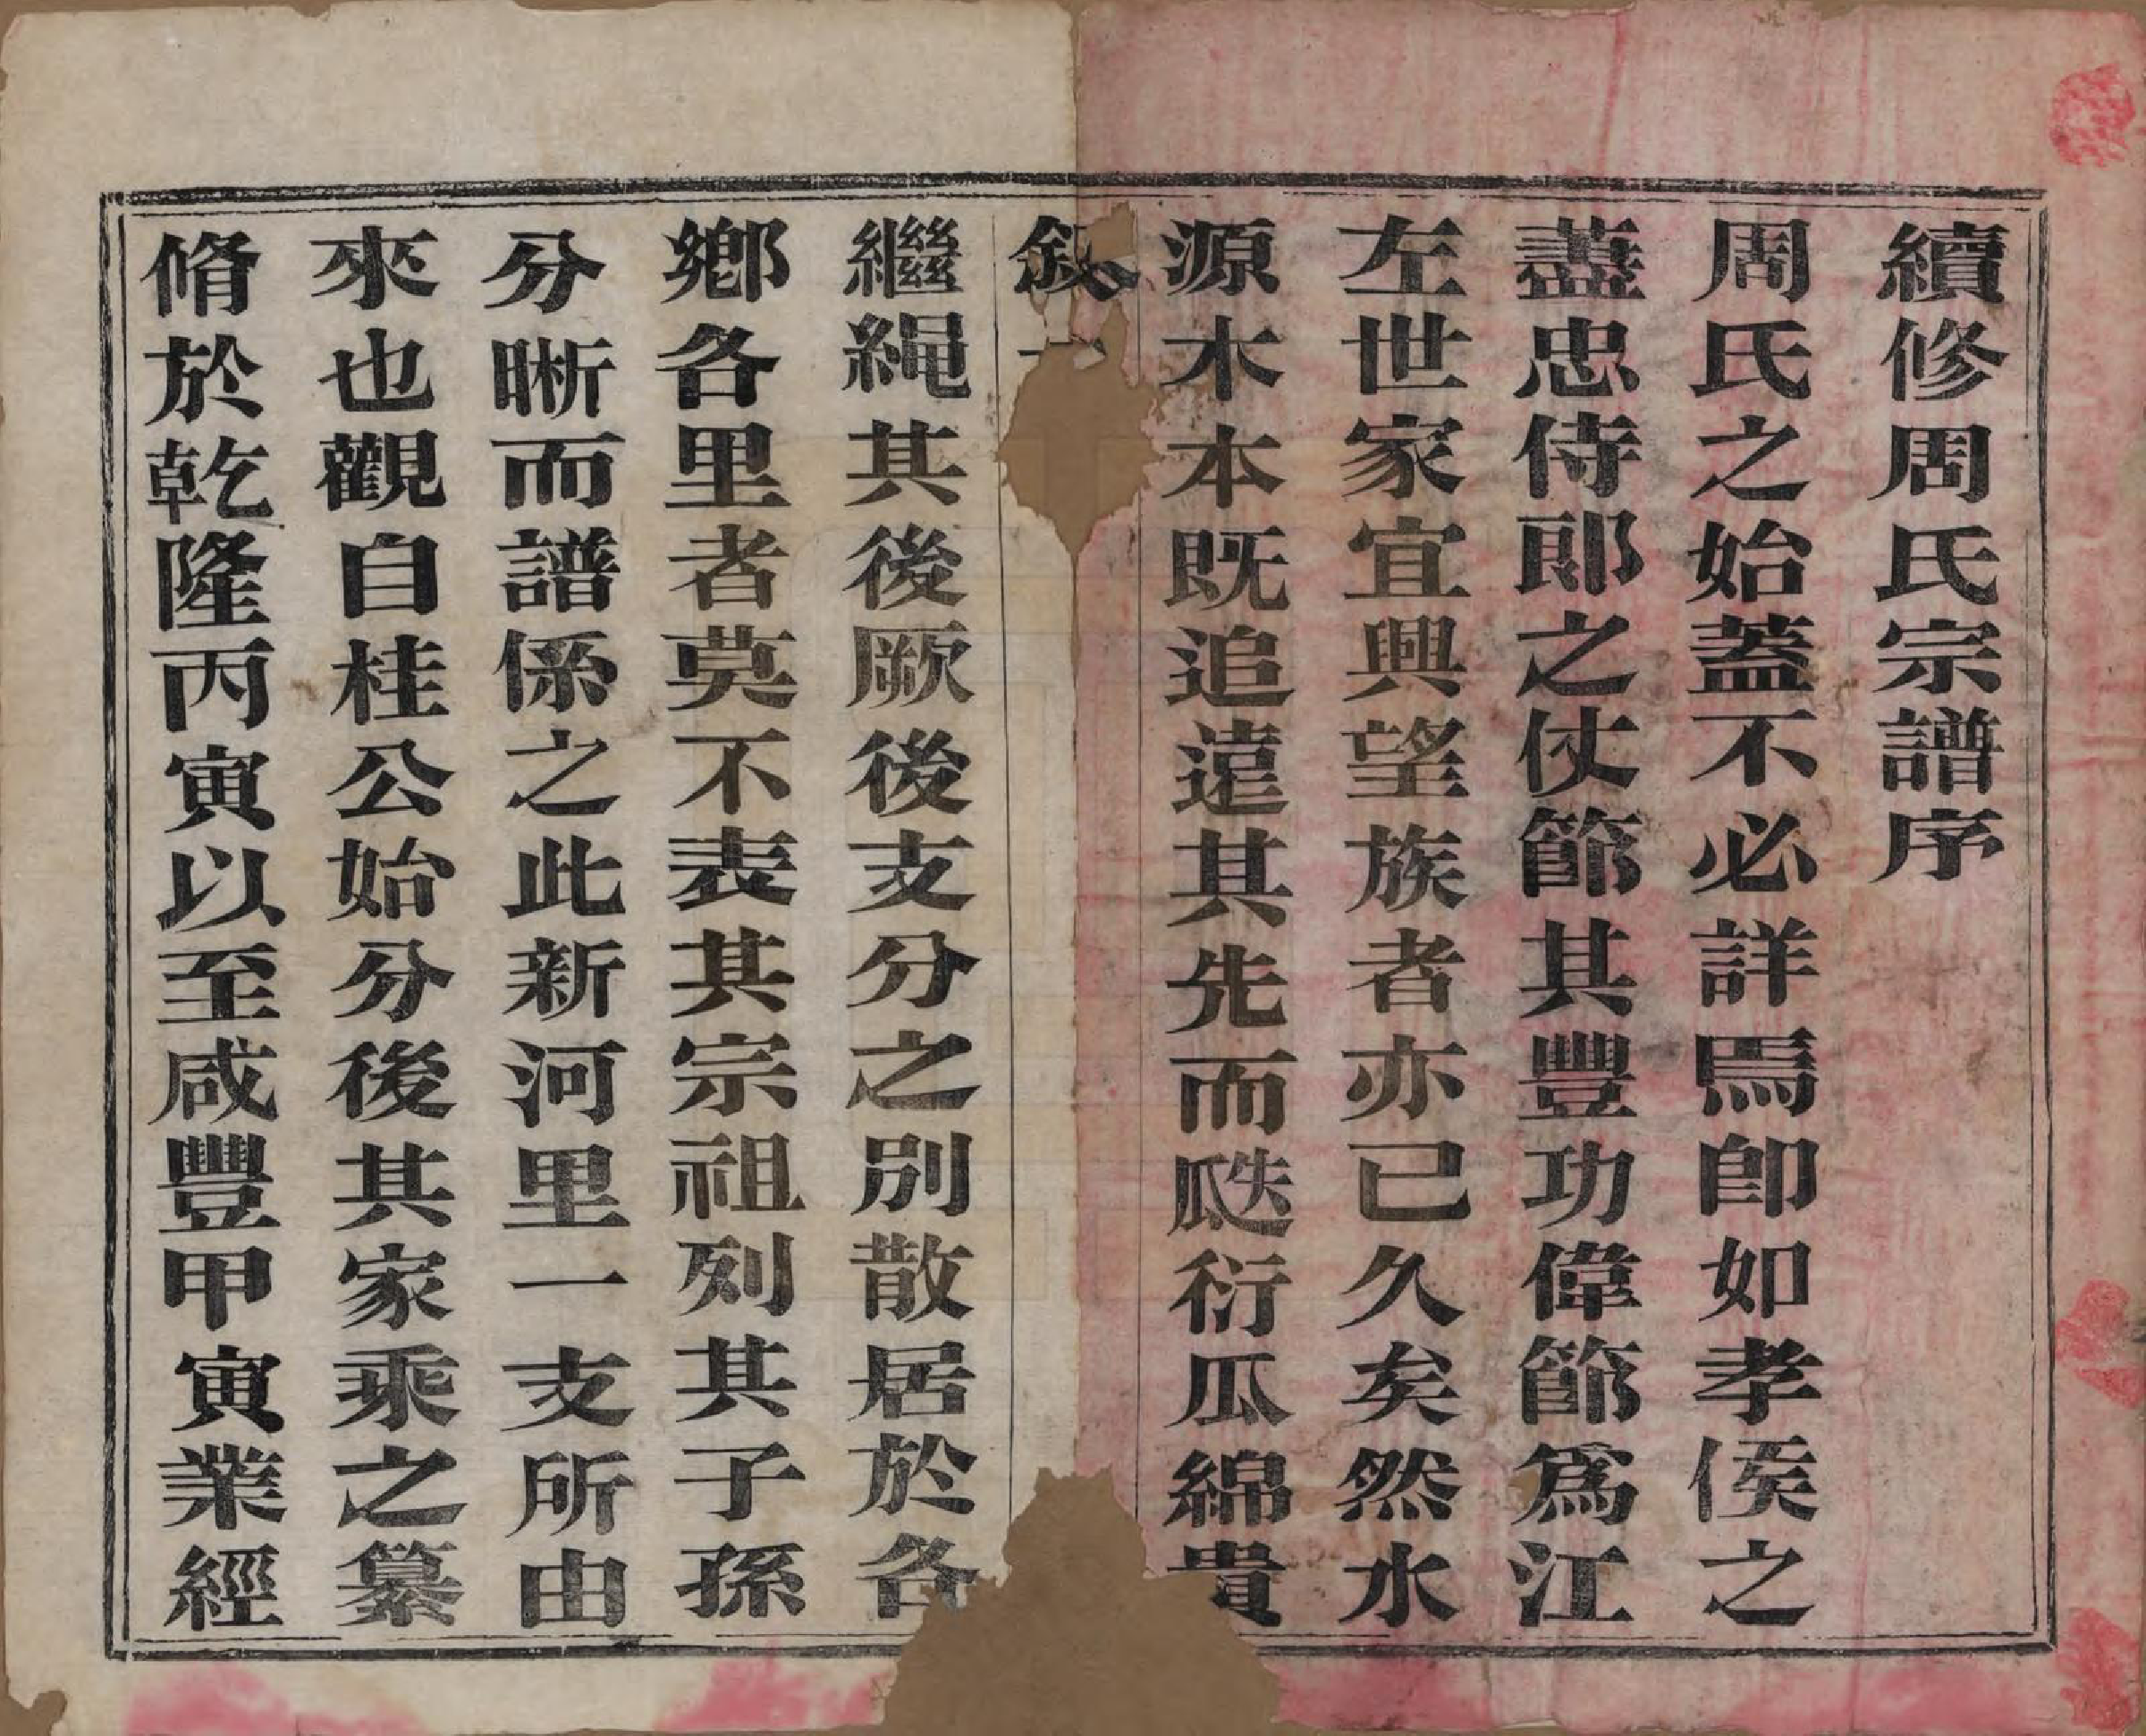 續修周氏宗譜序
周氏之始蓋不必詳焉卽如孝侯之
藎忠侍郎之仗節其豐功偉節爲江
左世家宜興望族者亦已久矣然水
源木本既追遠其先而瓞衍瓜綿貴
敘
繼繩其後厥後支分之別散居於各
鄉各里者莫不表其宗祖列其子孫
分晰而譜係之此新河里一支所由
來也觀自桂公始分後其家乘之纂
脩於乾隆丙寅以至咸豐甲寅業經